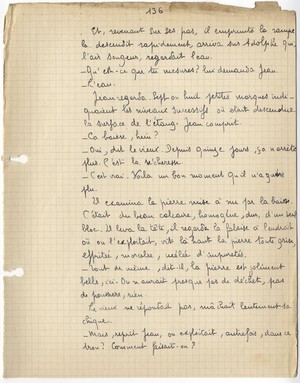 136
Et, revenant sur ses pas, il emprunta la rampe,
la descendit rapidement, arriva sur Adolphe qui,
l'air songeur, regardait l'eau.
_Qu'est-ce que tu mesures? lui demanda Jean.
_L'eau.
Jean regarda. Sept ou huit petites marques indi-
quaient les niveaux successifs où était descendue
la surface de l'étang. Jean comprit.
_Ça baisse, hein?
_Oui, dit le vieux. Depuis quinze jours, ça n'arrête
plus. C'est la sécheresse.
_C'est vrai. Voilà un bon moment qu'il n'a guère
plu.
Il examina la pierre mise à nu par la baisse.
C'était du beau calcaire, homogène, dur, d'un seul
bloc. Il leva la tête, il regarda la falaise à l'endroit
où on l'exploitait, vit là-haut la pierre toute grise,
effritée, morcelée, mêlée d'impuretés.
_Tout de même, dit-il, la pierre est joliment
belle, ici. On n'aurait presque pas de déchet, pas
de poussière, rien.
Le vieux ne répondait pas, mâchait lentement sa
chique.
_Mais, reprit Jean, on exploitait, autrefois, dans ce
trou? Comment faisait-on?